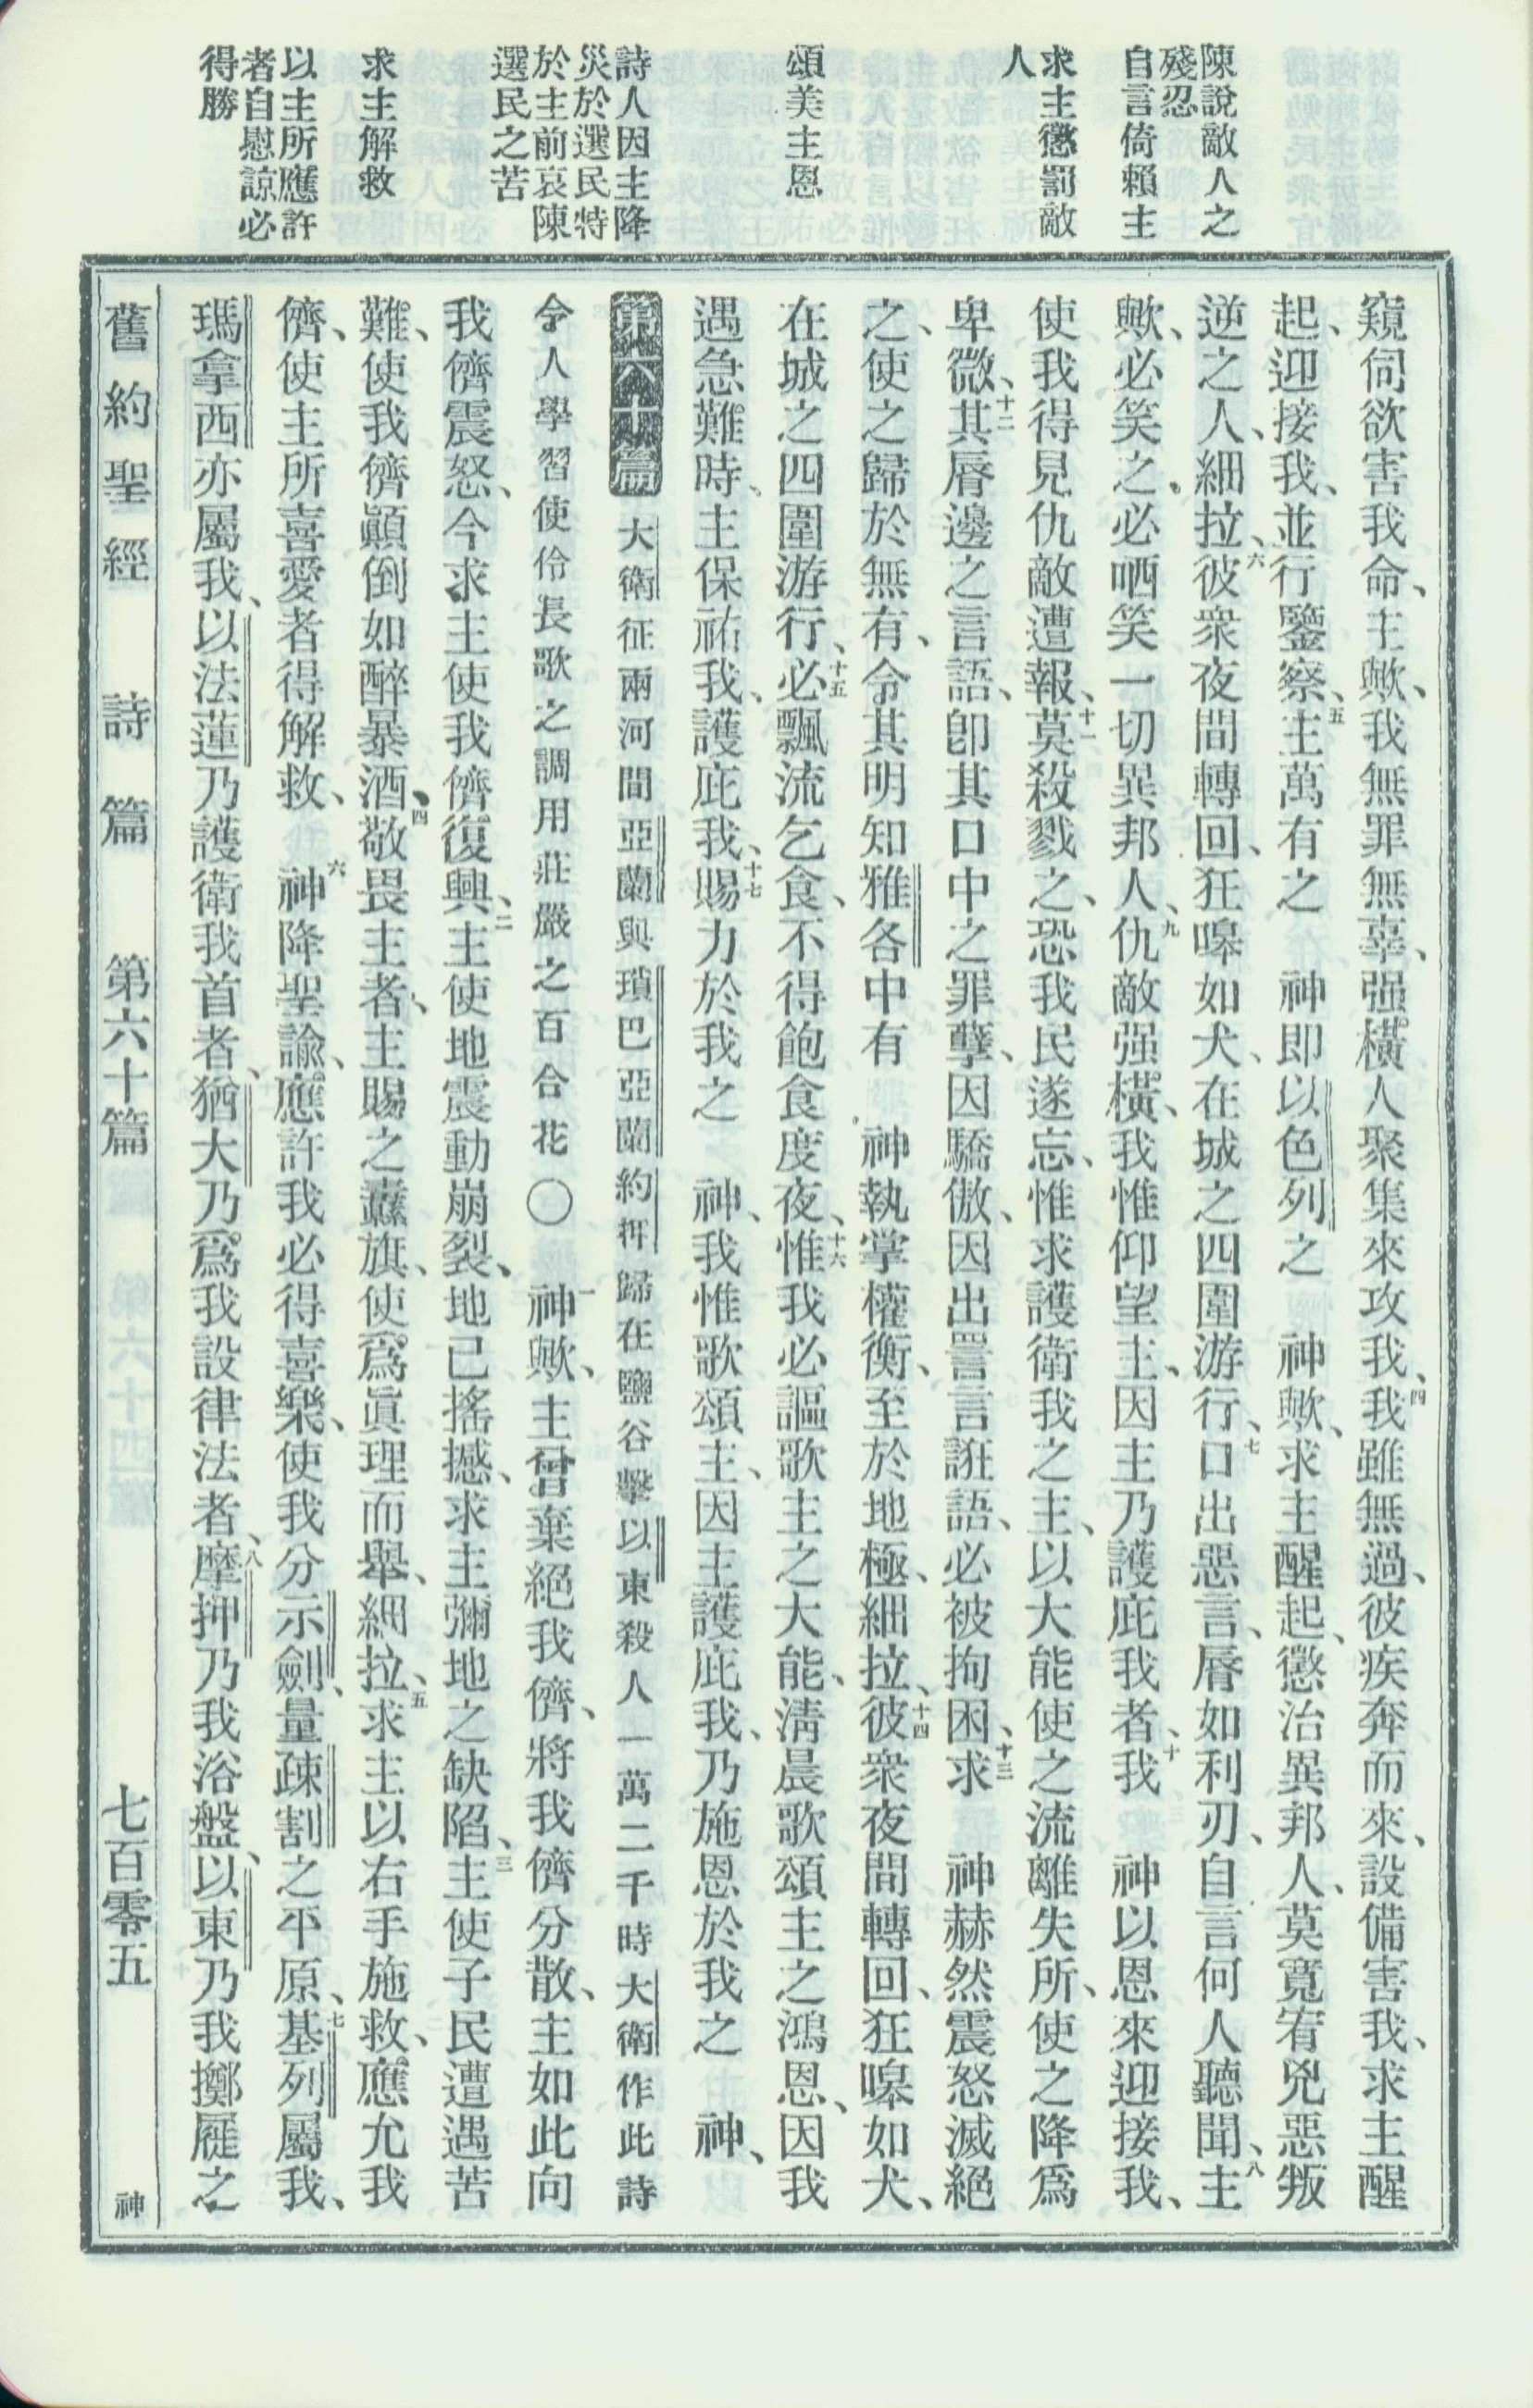 陳說敵人之
殘忍
自言倚賴主
求主懲罰敵
人
頌美主恩
詩人因主降
災於選民特
於主前哀陳
選民之苦
求主解救
以主所應許
者自慰諒必
得勝
窺伺欲害我命、主歟、我無罪無辜、强橫人聚集來攻我、四我雖無過、彼疾奔而來、設備害我、求主醒
起、迎接我、並行鑒察、五主萬有之　神即以色列之　神歟、求主醒起、懲治異邦人、莫寬宥兇惡叛
逆之人、細拉、六彼衆夜間轉回、狂嘷如犬、在城之四圍游行、七口出惡言、脣如利刃、自言何人聽聞、八主
歟、必笑之、必哂笑一切異邦人、九仇敵强橫、我惟仰望主、因主乃護庇我者、十我　神以恩來迎接我、
使我得見仇敵遭報、十一莫殺戮之、恐我民遂忘、惟求護衛我之主、以大能使之流離失所、使之降爲
卑微、十二其脣邊之言語、卽其口中之罪孽、因驕傲、因出詈言誑語、必被拘困、十三求　神赫然震怒滅絕
之、使之歸於無有、令其明知雅各中有　神執掌權衡、至於地極、細拉、十四彼衆夜間轉回、狂嘷如犬、
在城之四圍游行、十五必飄流乞食、不得飽食度夜、十六惟我必謳歌主之大能、淸晨歌頌主之鴻恩、因我
遇急難時、主保祐我、護庇我、十七賜力於我之　神、我惟歌頌主、因主護庇我、乃施恩於我之　神、
第六十篇　大衛征兩河間亞蘭與瑣巴亞蘭約押歸在鹽谷擊以東殺人一萬二千時大衛作此詩
令人學習使伶長歌之調用莊嚴之百合花〇　一神歟、主曾棄絕我儕、將我儕分散、主如此向
我儕震怒、今求主使我儕復興、二主使地震動崩裂、地已搖撼、求主彌地之缺陷、三主使子民遭遇苦
難、使我儕顚倒如醉暴酒、四敬畏主者、主賜之纛旗、使爲眞理而舉、細拉、五求主以右手施救、應允我
儕、使主所喜愛者得解救、　六神降聖諭、應許我必得喜樂、使我分示劍、量疎割之平原、七基列屬我、
瑪拿西亦屬我、以法蓮乃護衛我首者、猶大乃爲我設律法者、八摩押乃我浴盤、以東乃我擲屣之
舊約聖經　詩篇　第六十篇　七百零五　神